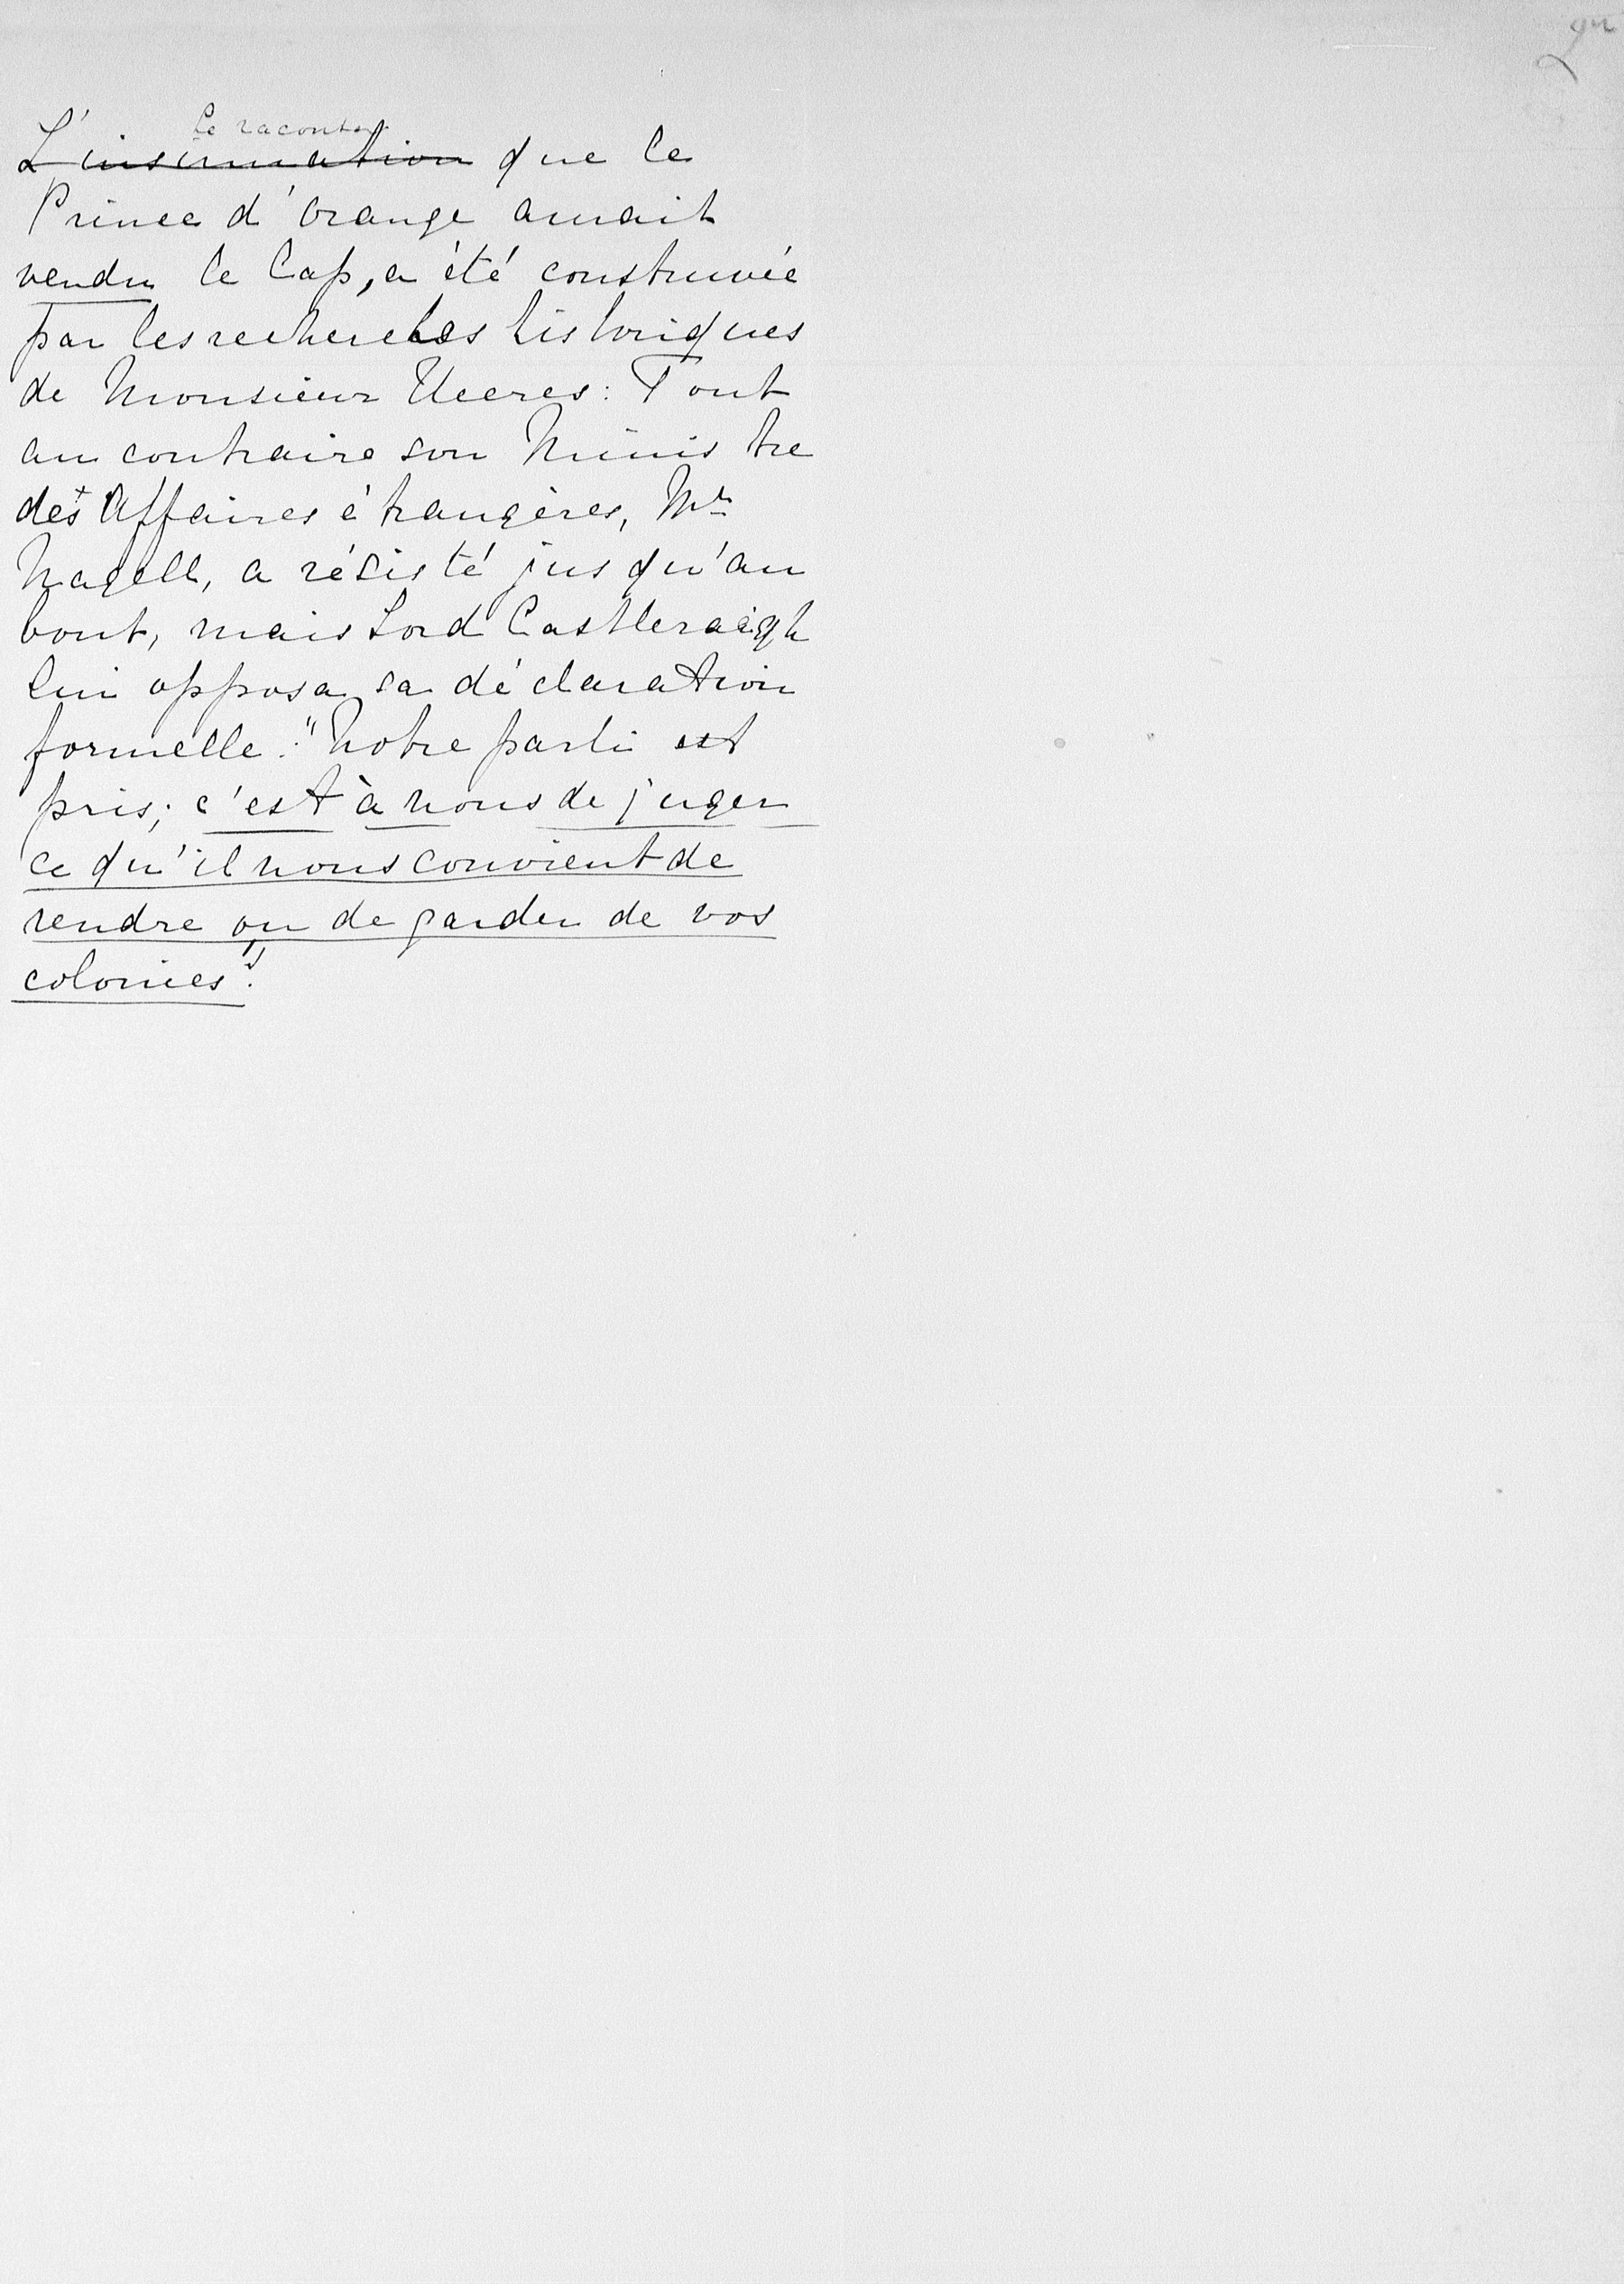 2n
Le racontar
L'insinuation que le
Prince d'Orange aurait
vendu le Cap, a été construvée
par les recherches historiques
de Monsieur Heeres: Tout
au contraire son Ministre
des Affaires étrangères, Mr
Nagell, a résisté jusqu'au
bout, mais Lord Castleraigh
lui opposa sa déclaration
formelle: "Notre parti est
pris; c'est à nous de juger
ce qu'il nous convient de
rendre ou de garder de vos
colonies".